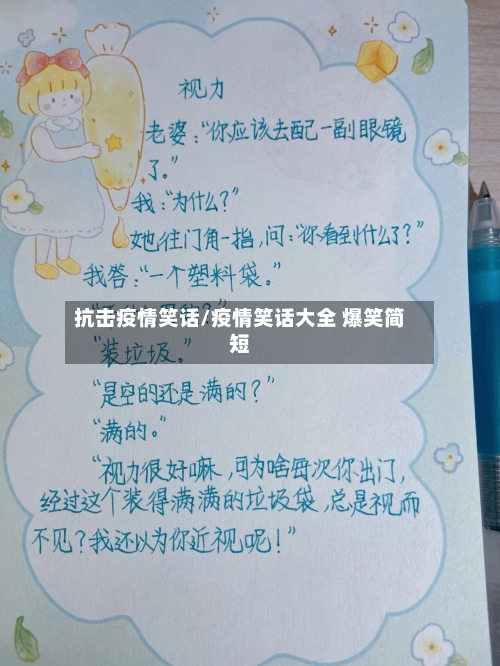 视力
老婆：“你应该去配一副眼镜
了。”
我：“为什么？”
她往门角一指，问：“你看到什么了？”
我答：“一个塑料袋。”
抗击疫情笑话/疫情笑话大全 爆笑简
短
“装垃圾。”
“是空的还是满的？”
“满的。”
“视力很好嘛，可为啥每次你出门，
经过这个装得满满的垃圾袋，总是视而
不见？我还以为你近视呢！”